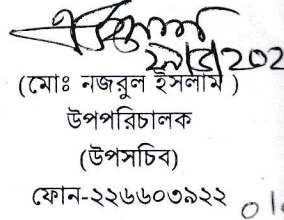 (মোঃ নজরুল ইসলাম )
উপপরিচালক
(উপসচিব)
ফোন-২২৬৬০৩৯২২